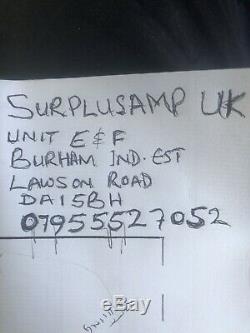 SURPLUSAMP UK
UNIT E & F
BURHAM IND. EST
LAWSON ROAD
DA15BH
07955527052
ebay